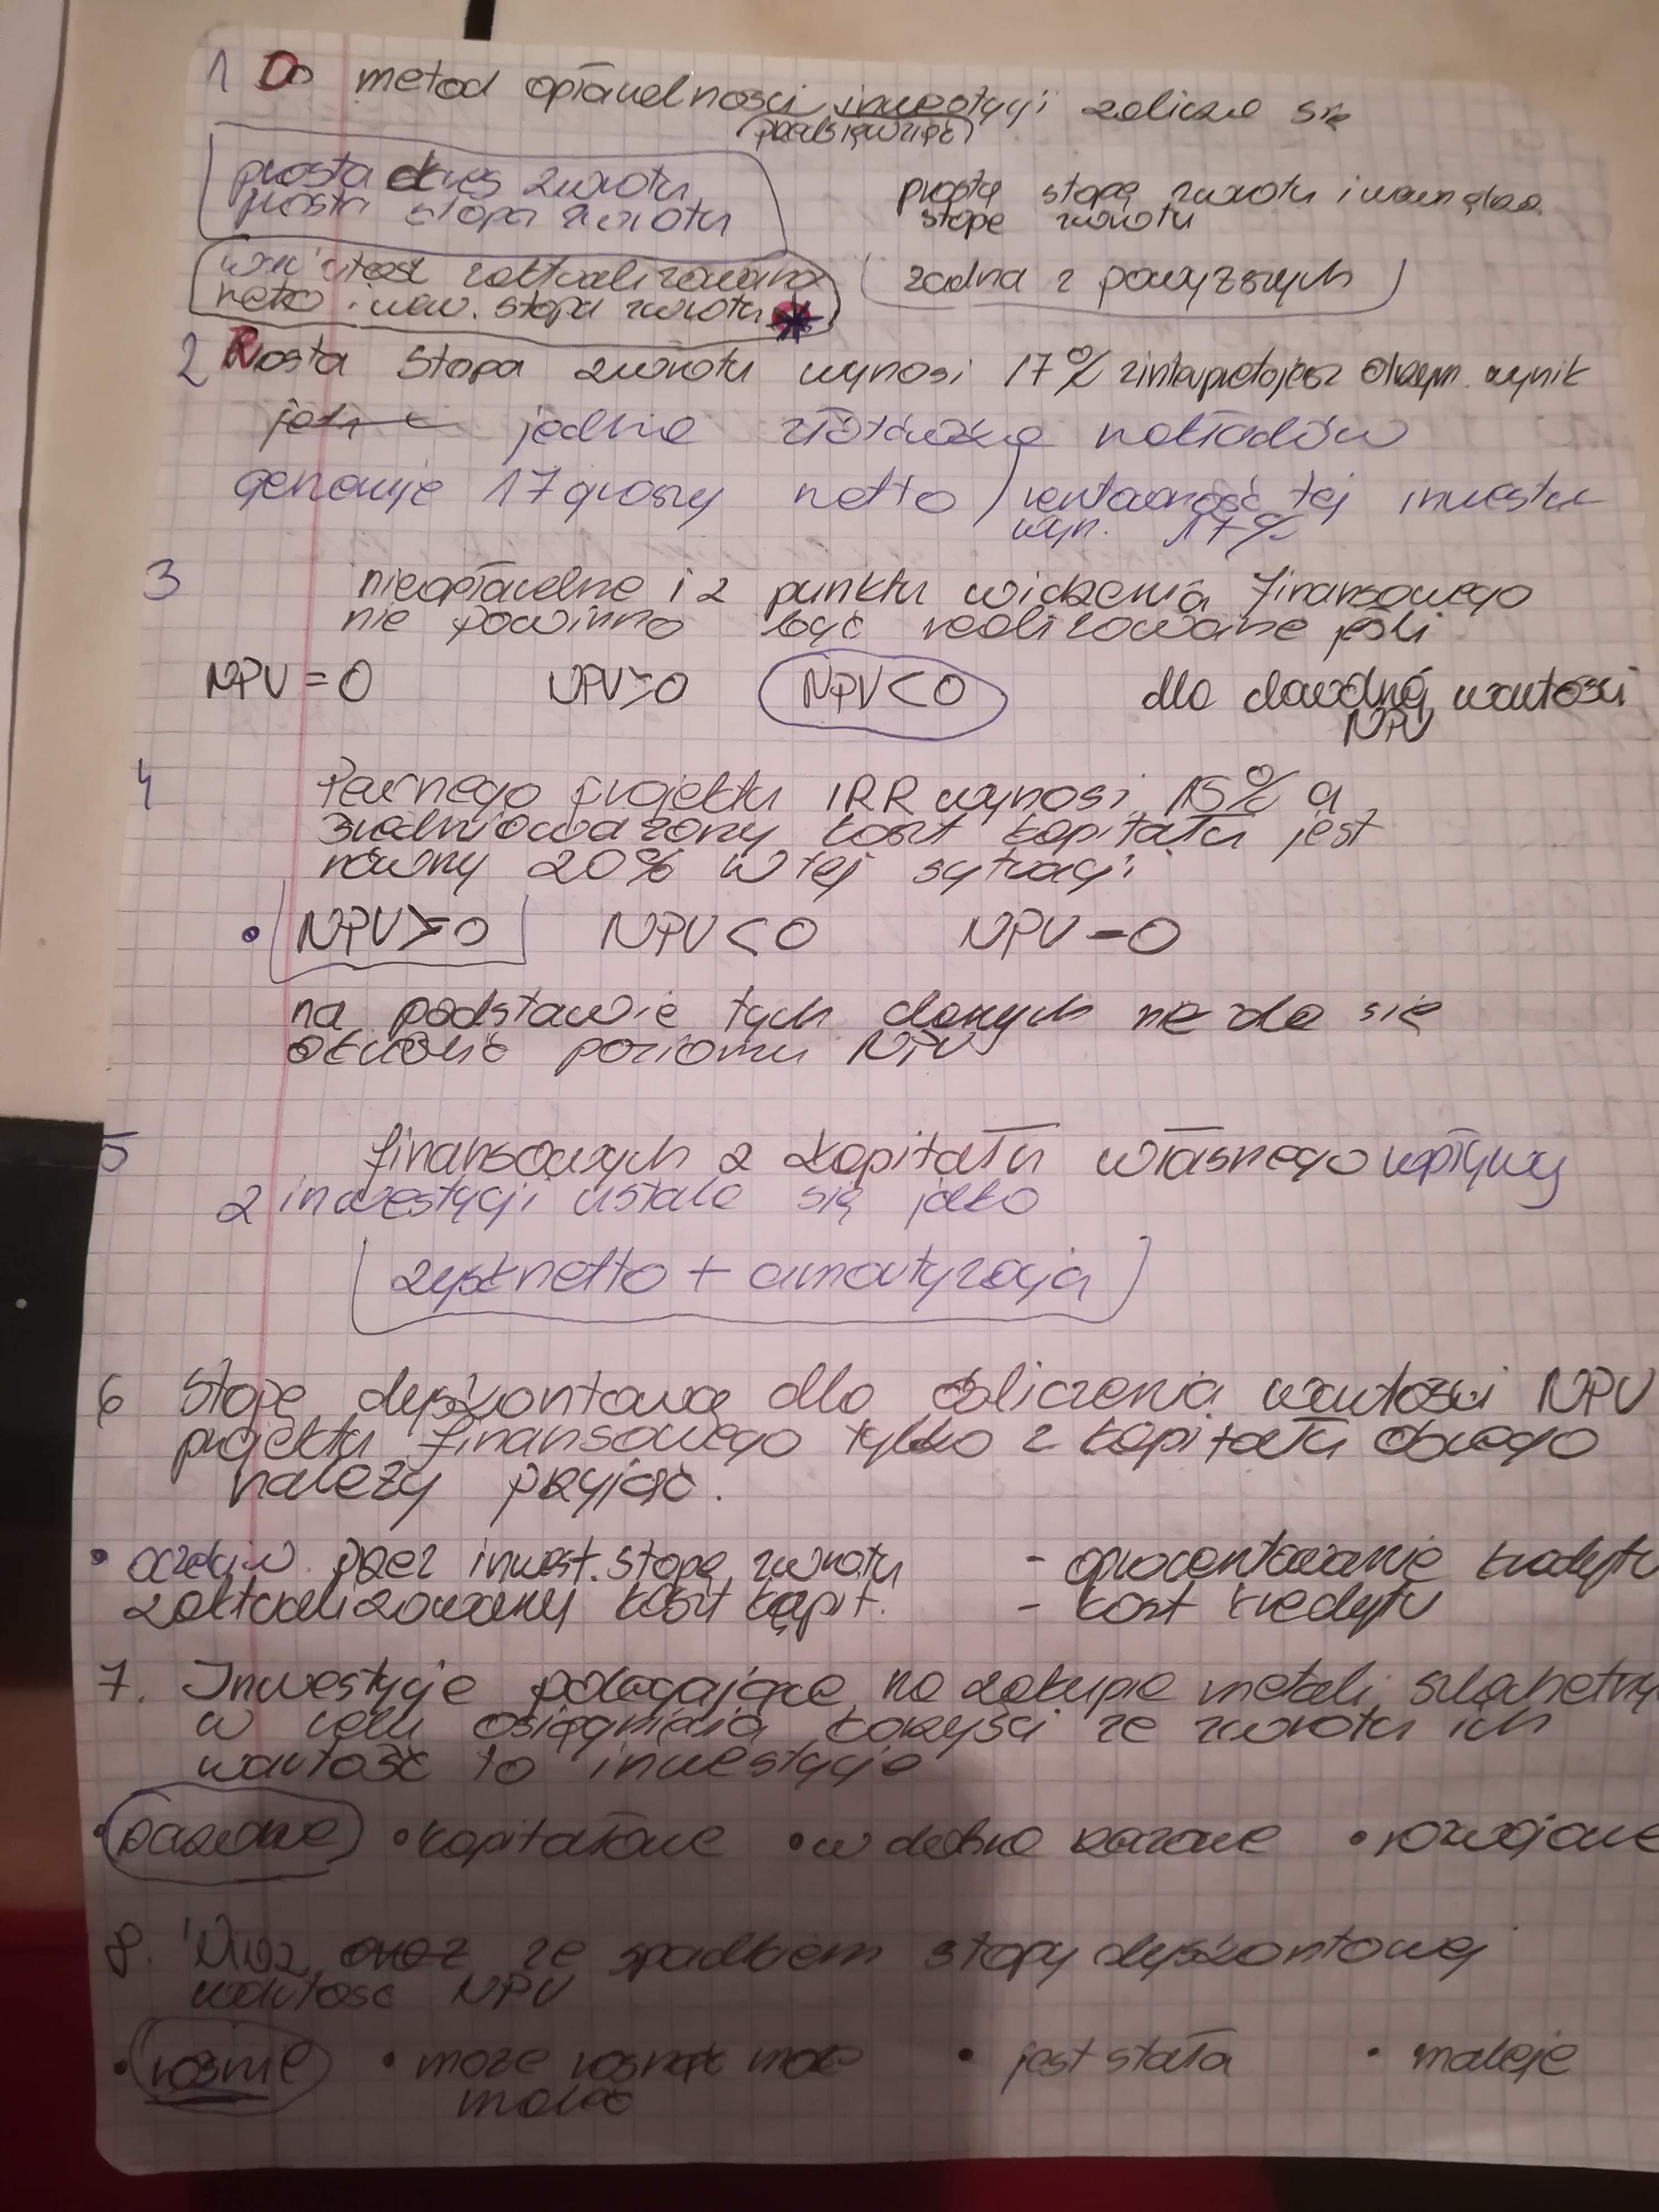 1 Do metod opłacalności inwestycji zalicza się
(przedsięwzięć)
prosta okres zwrotu
prosta stopa zwrotu
prostą stopę zwrotu i wewnętrzną
stopę zwrotu
wartość zaktualizowana
netto i wew. stopa zwrotu
żadna z powyższych
2 Prosta stopa zwrotu wynosi 17% zinterpretujesz otrzym. wynik
jedna złotówka nakładów
generuje 17 groszy netto / rentowność tej inwestu
wyn. 17%
3 nieopłacalne i z punktu widzenia finansowego
nie powinno być realizowane jeśli
NPV = 0 NPV > 0 NPV < 0 dla dowolnej wartości
NPV
4 Pewnego projektu IRR wynosi 15% a
średnioważony koszt kapitału jest
równy 20% w tej sytuacji
NPV > 0 NPV < 0 NPV = 0
na podstawie tych danych nie da się
określić poziomu NPV
5 finansowych z kapitału własnego wpływy
z inwestycji ustala się jako
zysk netto + amortyzacja
6 Stopę dyskontową dla obliczenia wartości NPV
projektu finansowego tylko z kapitału obcego
należy przyjąć.
• oczekiw. przez inwest. stopę zwrotu - oprocentowanie kredytu
zaktualizowany koszt kapit. - koszt kredytu
7. Inwestycje polegające na zakupie metali szlachetny
w celu osiągnięcia korzyści ze zwrotu ich
wartość to inwestycje
• • kapitałowe • w dobra • rozwojowe
8. Wraz ze spadkiem stopy dyskontowej
wartość NPV
• rośnie • może rosnąć może • jest stała • maleje
maleć